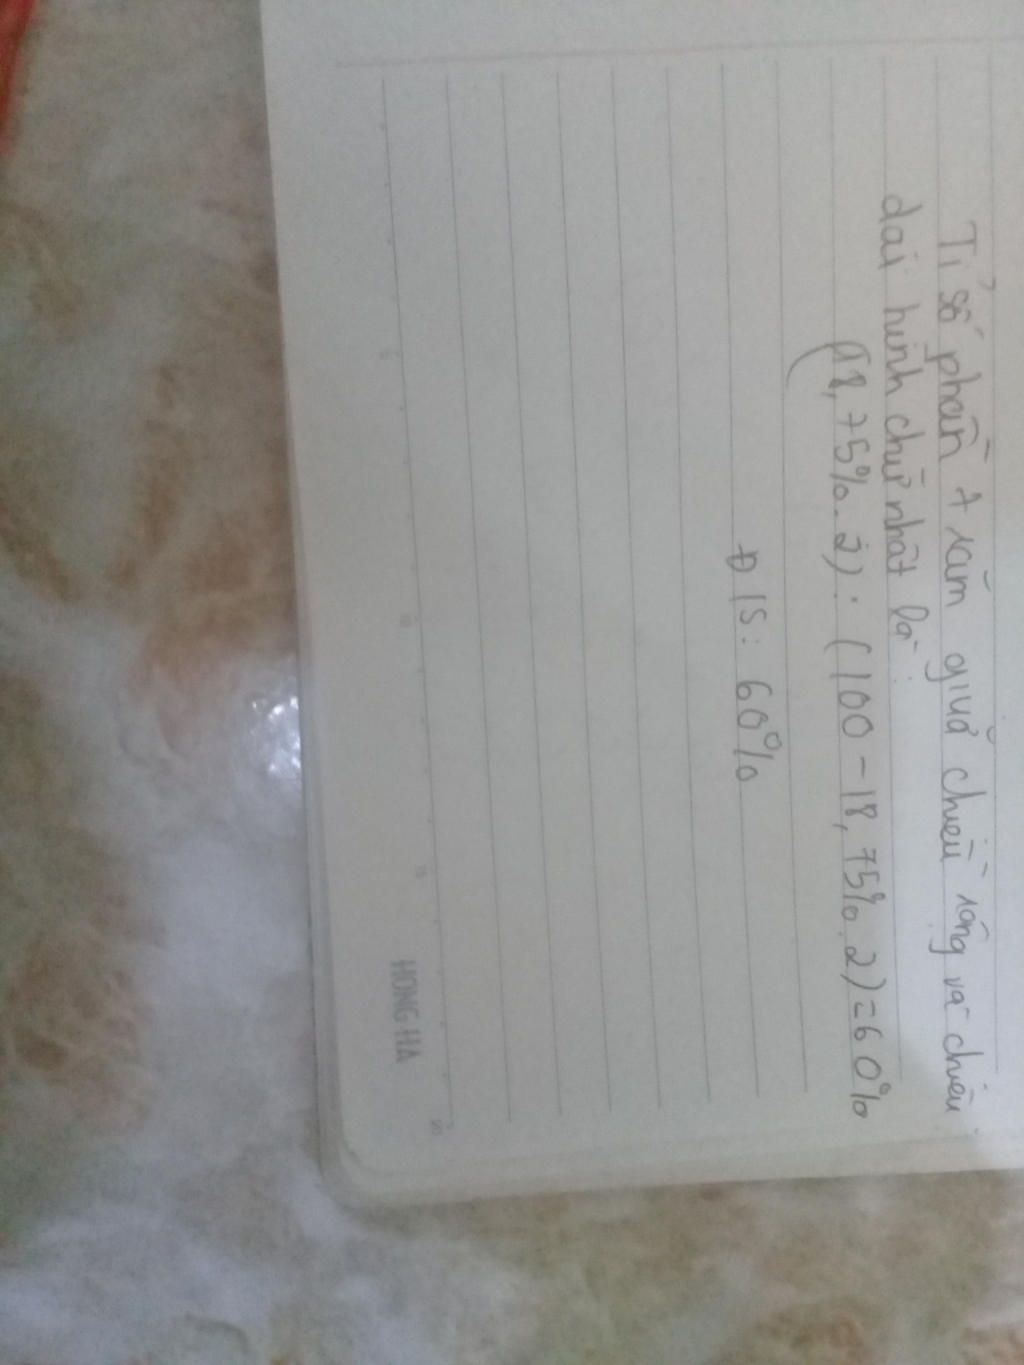 Tỉ số phần trăm giữa chiều rộng và chiều
dài hình chữ nhật là:
(18,75%.2): (100-18,75%.2)=60%
Đ/S: 60%
HONG HA
5
10
15
20